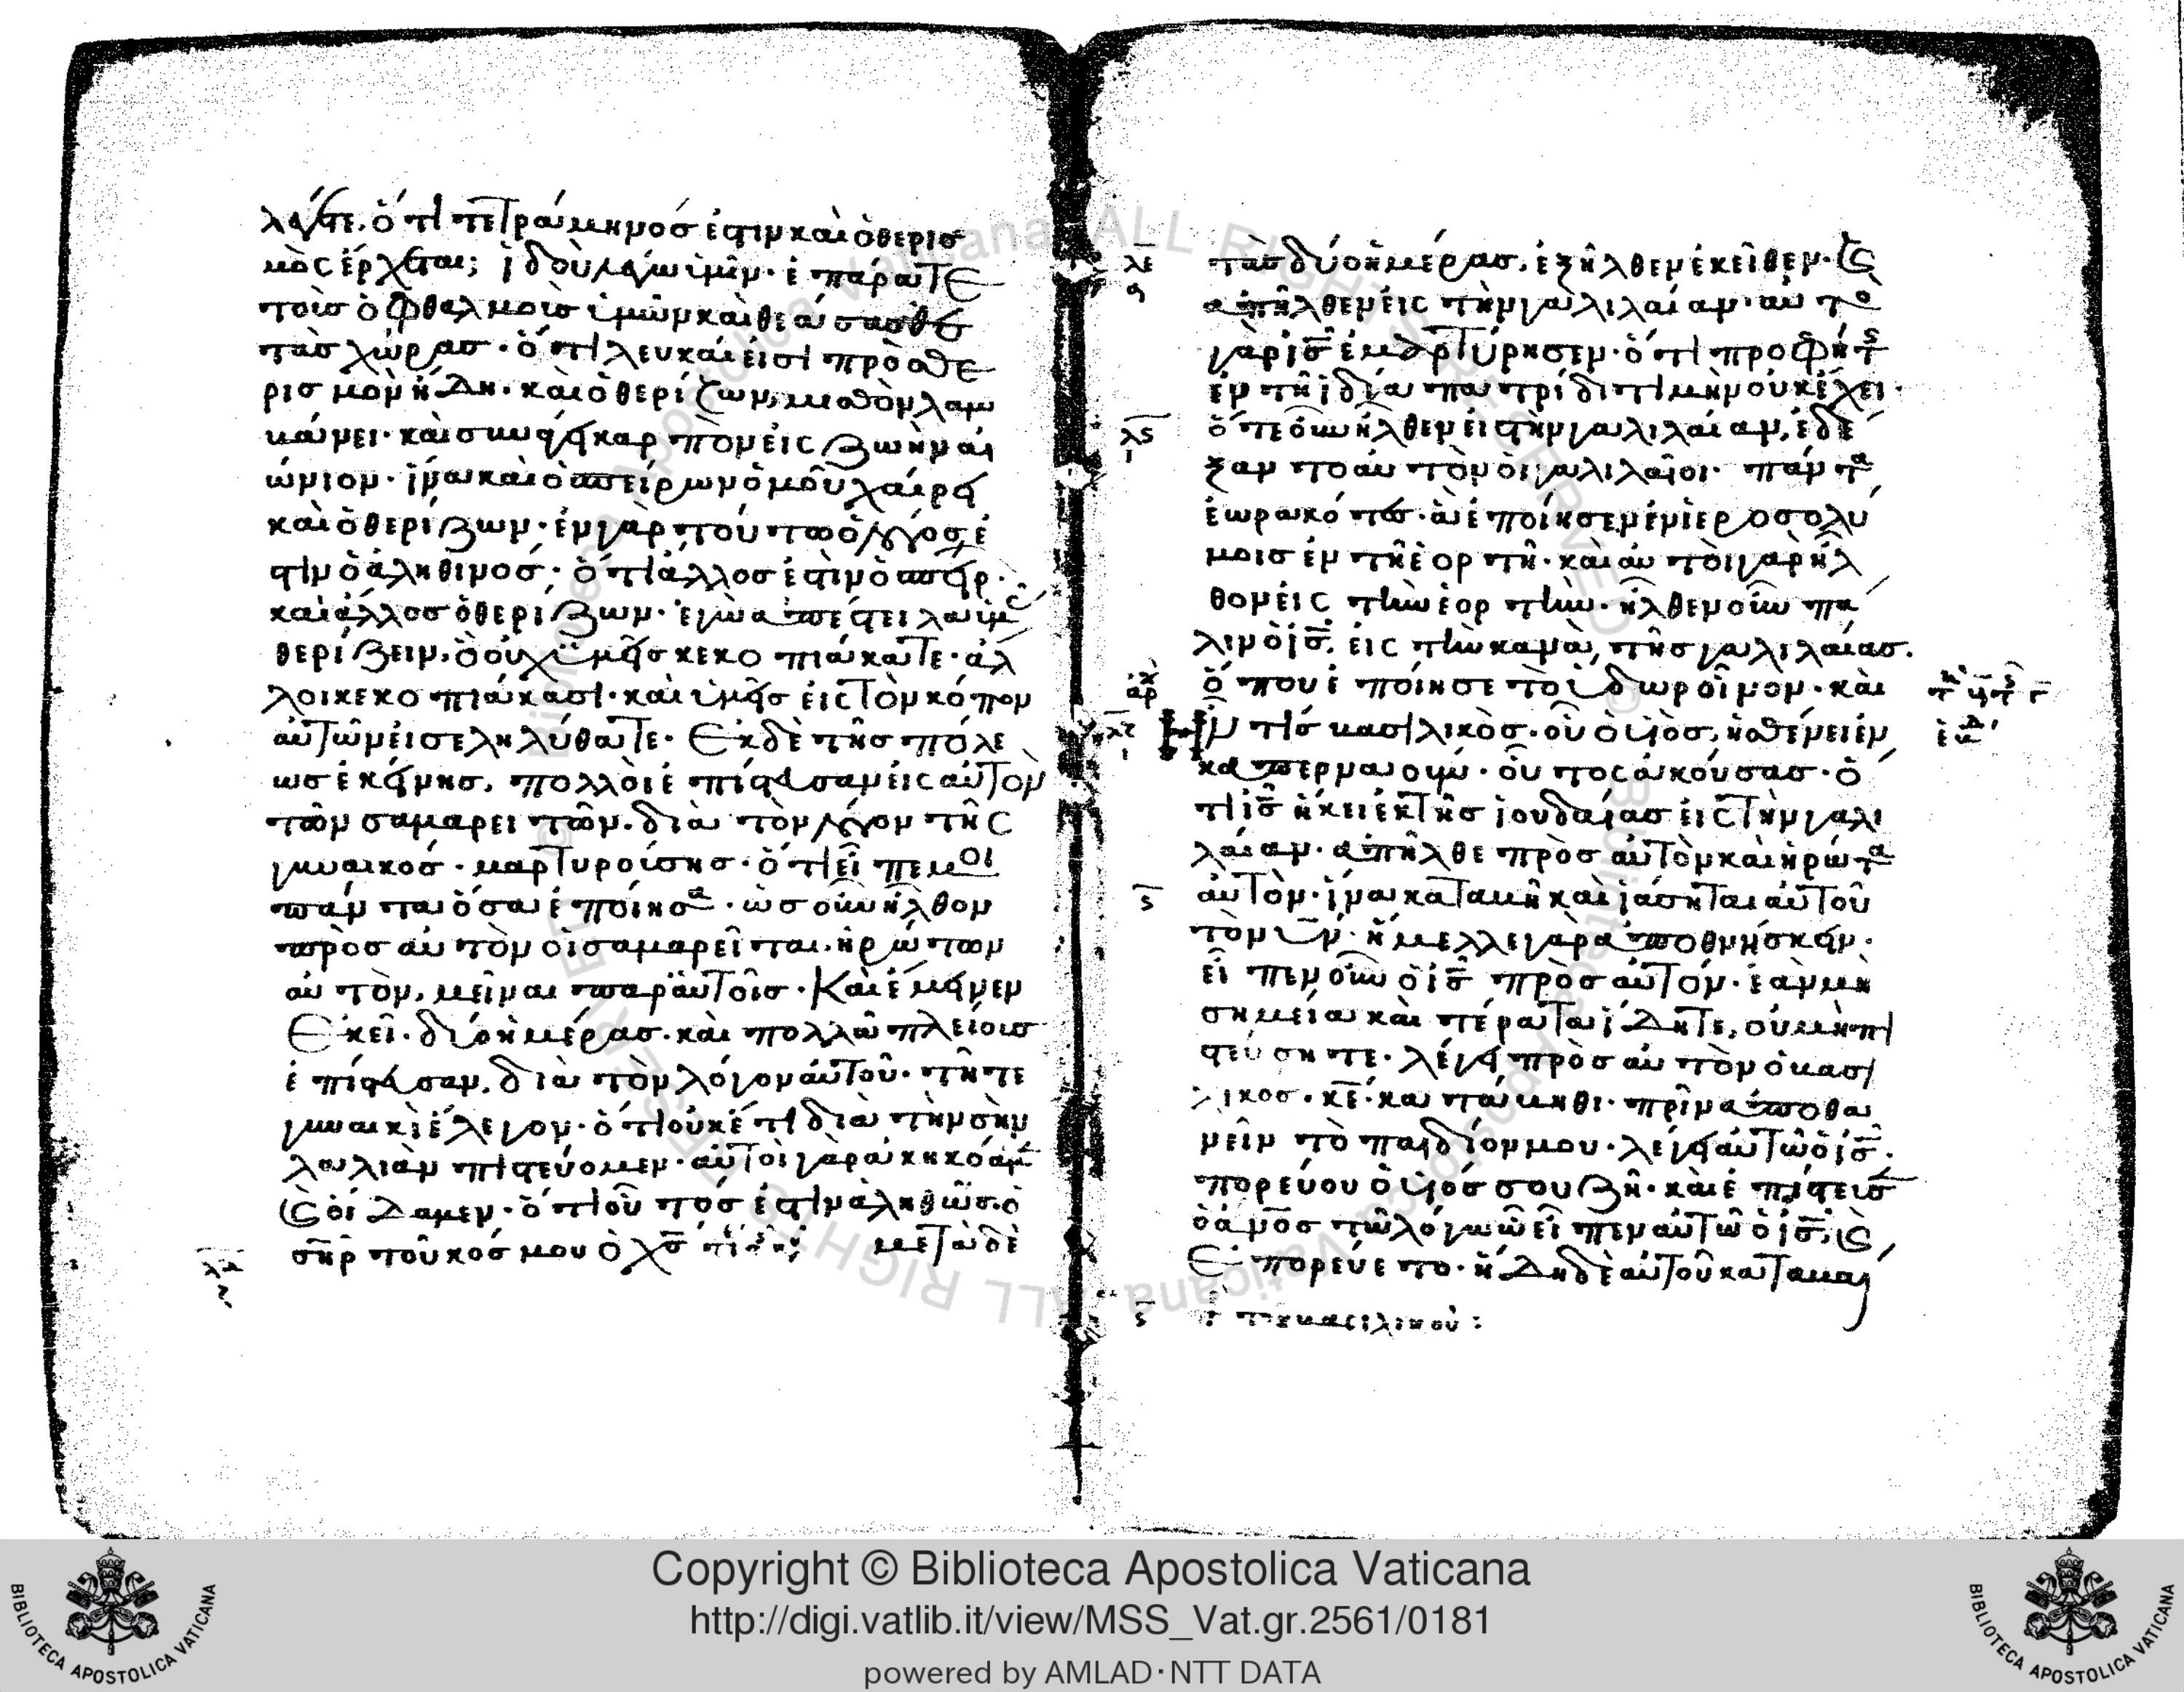 λέγετε. ὅτι τετράμηνοσ ἐστιν καὶ ὁ θερισ
μὸς ἔρχεται; ἰδοὺ λέγω ὑμῖν· ἐπάρατε
τοὺσ ὀφθαλμοὺσ ὑμῶν καὶ θεάσασθε
τὰσ χώρασ· ὅτι λευκαί εἰσι πρὸσ θε
ρισμὸν ἤδη. καὶ ὁ θερίζων, μισθὸν λαμ
βάνει· καὶ συνάγει καρπὸν εἰς ζωὴν αἰ
ώνιον· ἵνα καὶ ὁ σπείρων ὁμοῦ χαίρει
καὶ ὁ θερίζων· ἐν γὰρ τούτω ὁ λόγοσ ἐ
στὶν ὁ ἀληθινοσ· ὅτι ἄλλοσ ἐστὶν ὁ σπείρ.
καὶ ἄλλοσ ὁ θερίζων· ἐγὼ ἀπέστειλα ὑμ
θερίζειν, ὃ οὐχ ὑμεῖσ κεκοπιάκατε· ἄλ
λοι κεκοπιάκασι· καὶ ὑμεῖσ εἰς τὸν κόπον
αὐτῶν εἰσεληλύθατε· Ἐκ δὲ τῆσ πόλε
ωσ ἐκείνησ, πολλοὶ ἐπίστευσαν εἰς αὐτὸν
τῶν σαμαρειτῶν. διὰ τὸν λόγον τῆς
γυναικόσ· μαρτυρούσησ· ὅτι εἶπε μοι
πάντα ὅσα ἐποίησα· ὡσ οὖν ἦλθον
πρὸσ αὐτὸν οἱ σαμαρεῖται. ἠρώτων
αὐτὸν, μεῖναι παρ αὐτοῖσ· Καὶ ἔμεινεν
Ἐκεῖ· δύο ἡμέρασ. καὶ πολλῶ πλείουσ
ἐπίστευσαν, διὰ τὸν λόγον αὐτοῦ· τῆ τε
γυναικὶ ἔλεγον· ὅτι οὐκέτι διὰ τὴν σὴν
λαλιὰν πιστεύομεν· αὐτοὶ γὰρ ἀκηκόαμ
ϗ οἴδαμεν· ὅτι οὗτοσ ἐστὶν ἀληθῶσ. ὁ
σηρ τοῦ κόσμου ὁ χσ μετὰ δὲ
λε τὰσ δύο ἡμέρασ. ἐξῆλθεν ἐκεῖθεν· ϗ
ἀπῆλθεν εἰς τὴν γαλιλαίαν· αὐτὸ
γὰρ ισ ἐμαρτύρησεν· ὅτι προφήτ
ἐν τῆ ἰδία πατρίδι τιμὴν οὐκ ἔχει·
λϛ ὅτε οὖν ἦλθεν εἰ στὴν γαλιλαίαν, ἐδέ
ξαντο αὐτὸν οἱ γαλιλαῖοι· πάντα
ἑωρακότεσ· ἃ ἐποίησεν ἐν ἱεροσολύ
μοισ ἐν τῆ ἑορτῆ· καὶ αὐτοὶ γὰρ ἦλ
θον εἰς τὴν ἑορτὴν. ἦλθεν οὖν πά
λιν ὁ ισ. εἰς τὴν κανὰ, τῆσ γαλιλαίασ.
ὅπου ἐποίησε τὸ ὕδωρ οἶνον· καὶ
ἦν τὶσ βασιλικὸσ· οὗ ὁ υἱὸσ, ἠσθένει ἐν
καπερναούμ· οὗτος ἀκούσασ· ὅ
τι ισ ἥκει ἐκ τῆσ ἰουδαίασ εἰς τὴν γαλι
λαίαν· ἀπῆλθε πρὸσ αὐτὸν καὶ ἠρώτα
αὐτὸν· ἵνα καταβῆ καὶ ἰάσηται αὐτοῦ
τὸν υν· ἤμελλε γὰρ ἀποθνήσκειν·
εἶπεν οὖν ὁ ισ πρὸσ αὐτόν· ἐὰν μὴ
σημεῖα καὶ τέρατα ἴδητε, οὐ μὴ πι
στεύσητε· λέγει πρὸσ αὐτὸν ὁ βασι
λικοσ· κε· κατάβηθι· πρὶν ἀποθα
νεῖν τὸ παιδίον μου· λέγει αὐτῶ ὁ ισ·
πορεύου ὁ υἱόσ σου ζῆ· καὶ ἐπίστευσ
ὁ ανοσ τῶ λόγω ὧ εἶπεν αὐτῶ ὁ ισ, ϗ
Ἐπορεύετο· ἤδη δὲ αὐτοῦ καταβαί